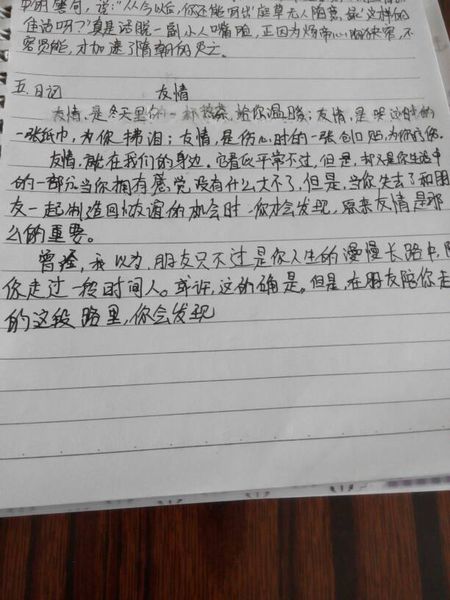 中的是句,说:"从今以后,你还能写出'庭草无人随意绿'这样的
佳话吗?"真是活脱一副小人嘴脸,正因为炀帝心胸狭窄,不
容贤能,才加速了隋朝的灭亡。
五、日记 友情
友情,是冬天里的一都,给你温暖;友情,是哭泣时的
一张纸巾,为你拂泪;友情,是伤心时的一张创口贴,为你疗伤。
友情,就在我们的身边,它看似平常不过,但是,却又是你生活中
的一部分当你拥有感觉没有什么大不了,但是,当你失去了和朋
友一起制造回忆友谊的机会时,你才会发现,原来友情是那
么的重要。
曾经,我以为,朋友只不过是你人生的漫慢长路中,陪
你走过一段时间人。或许,这的确是。但是,在朋友陪你走
的这段路里,你会发现